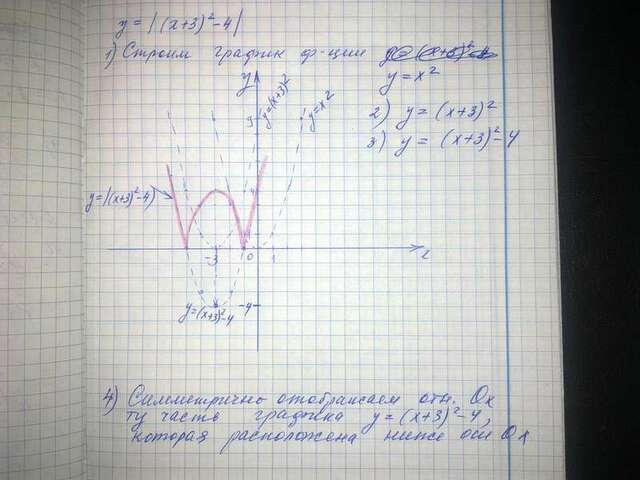 y = |(x+3)²-4|
1) Строим график ф-ции
y = x²
2) y = (x+3)²
3) y = (x+3)²-4
y
9
y=(x+3)²
y=x²
y=|(x+3)²-4|
-3
0
1
x
-4
y=(x+3)²-4
4) Симметрично отображаем отн. Ox
ту часть графика y = (x+3)²-4,
которая расположена ниже оси Ox